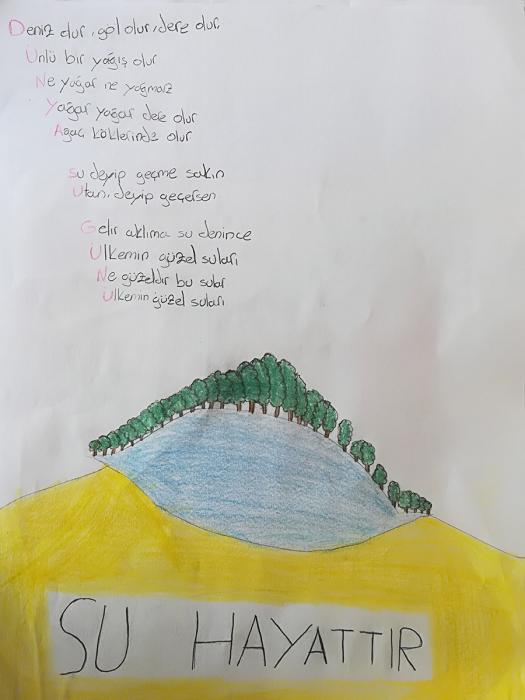 Deniz olur, göl olur, dere olur.
Ünlü bir yağış olur
Ne yağar ne yağmaz
Yağar yağar dere olur
Ağaç köklerinde olur
Su deyip geçme sakın
Utan, deyip geçersen
Gelir aklıma su denince
Ülkemin güzel suları
Ne güzeldir bu sular
Ülkemin güzel suları
SU HAYATTIR